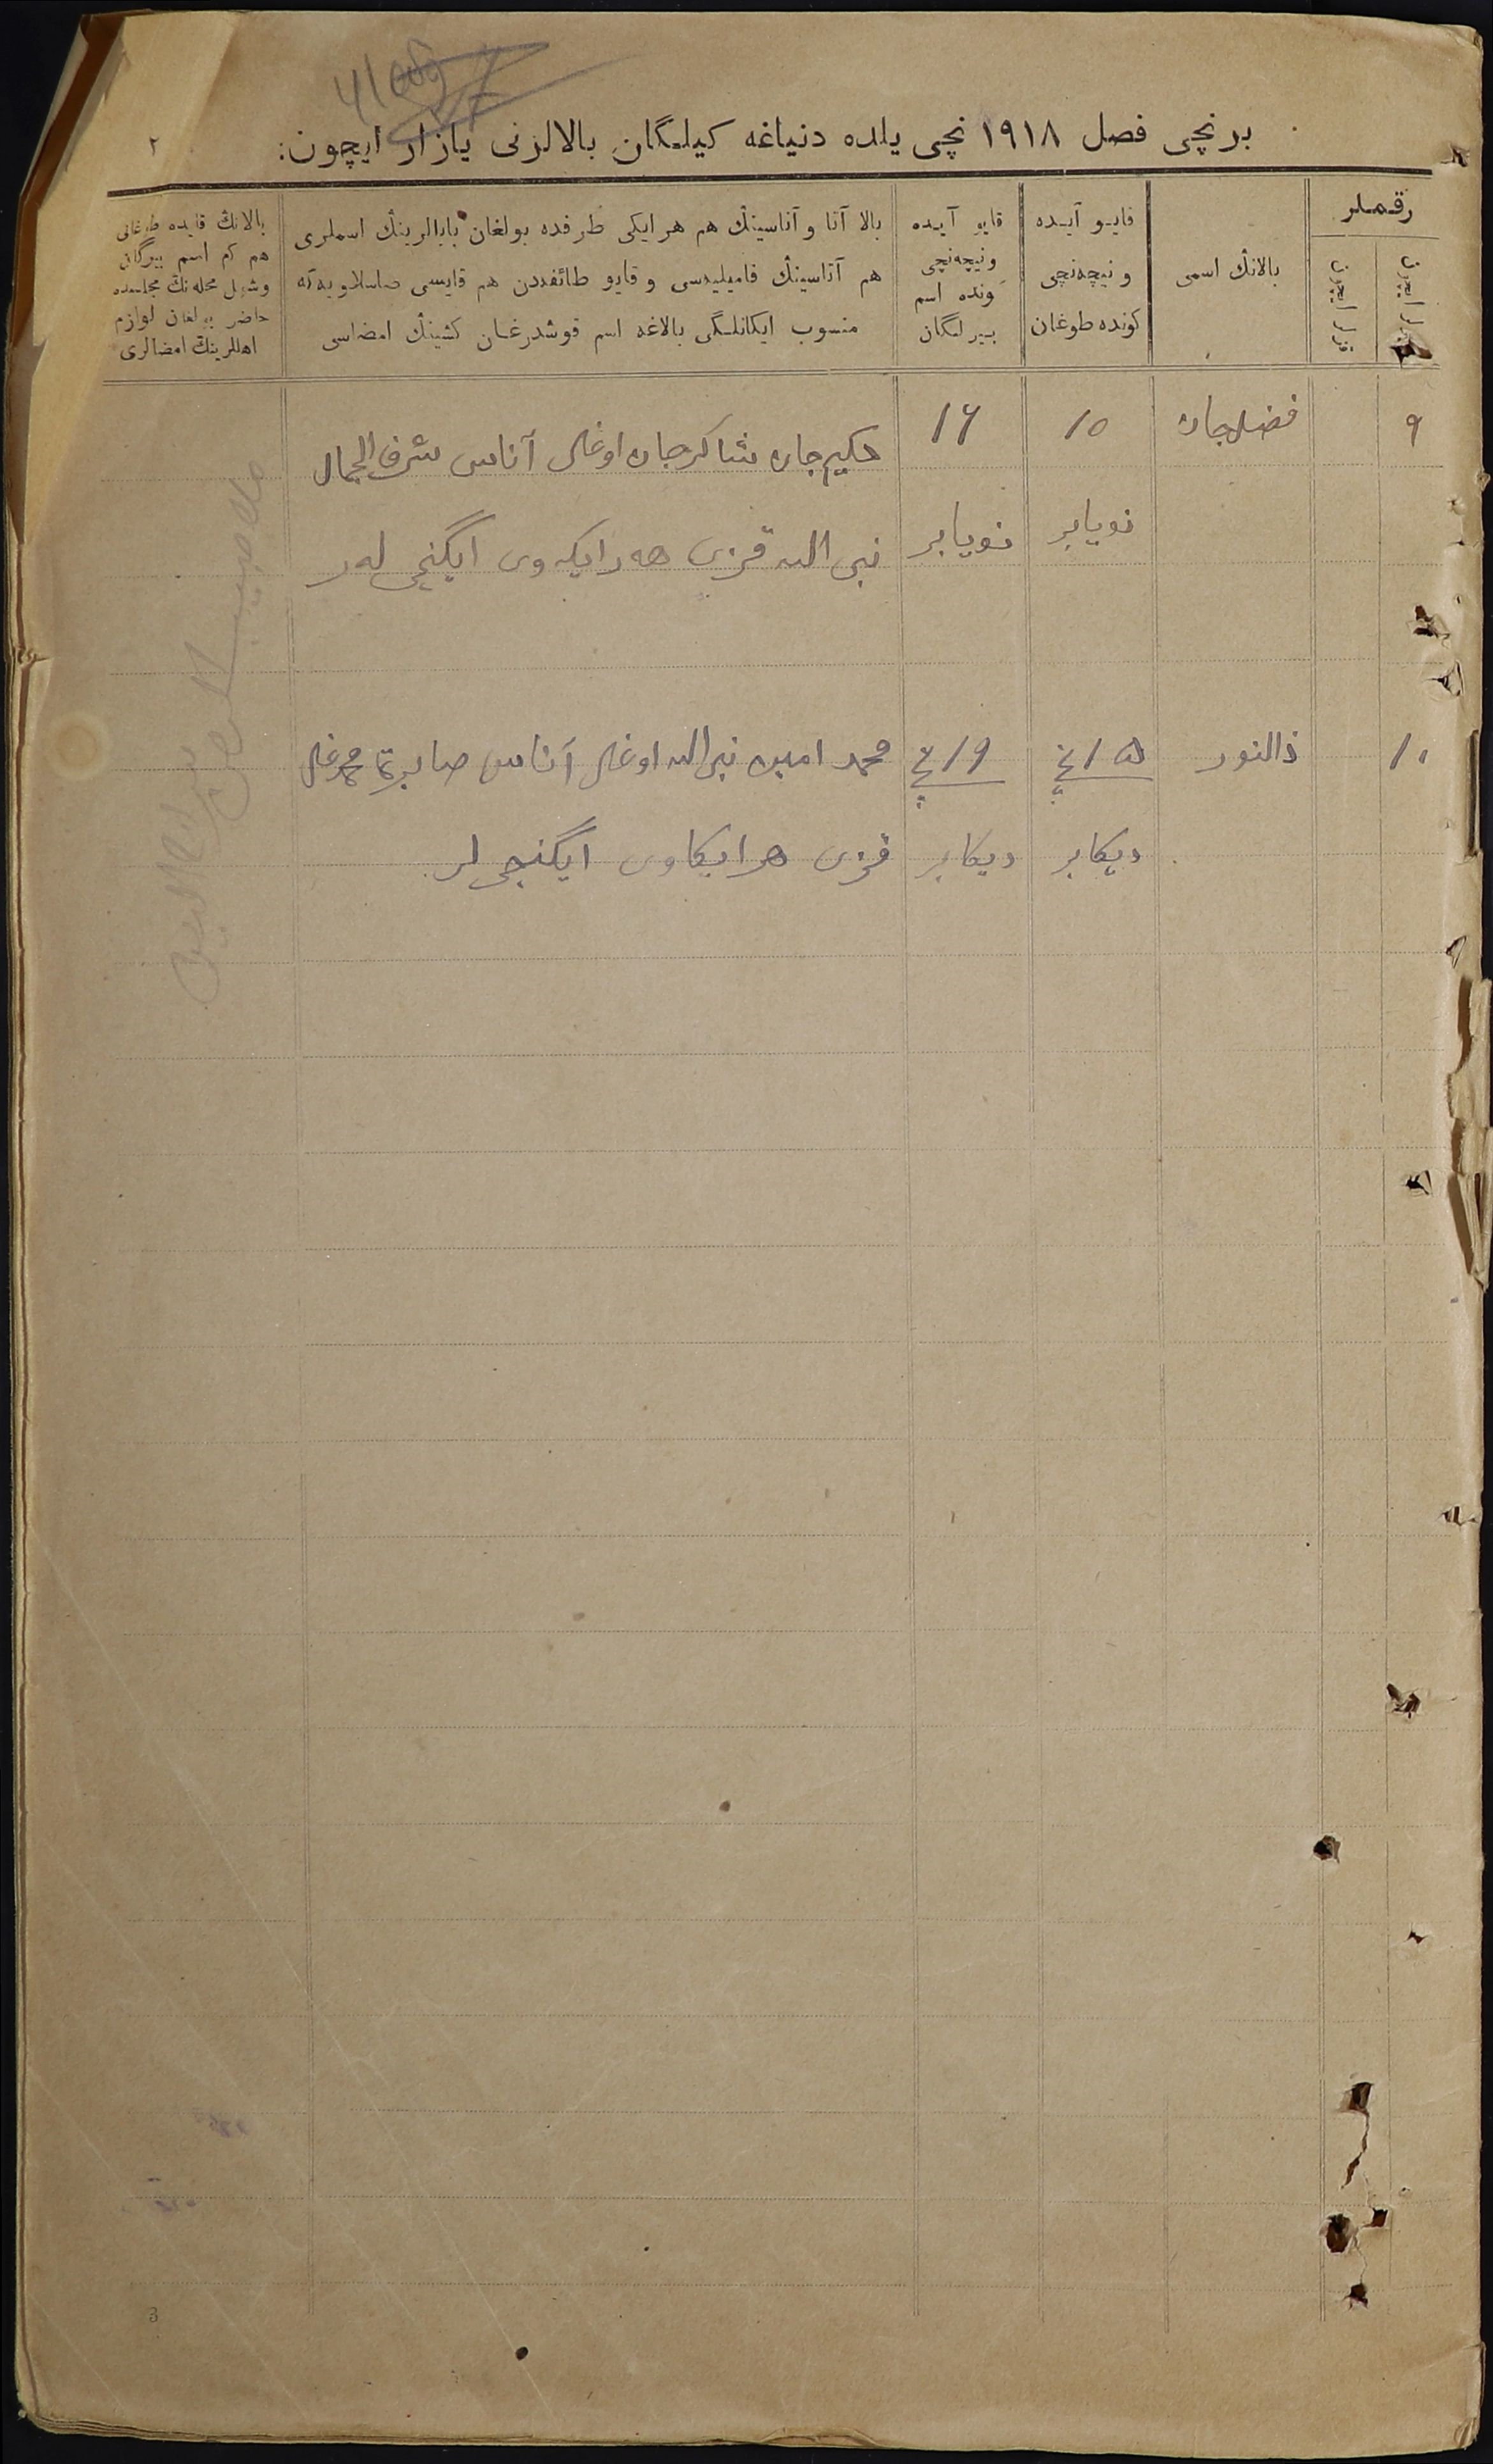 برنچی فصل ١٩١٨ نچی یلده دنیاغه کیلگان بالالرنی یازار ایچون:
٢
رقملر
بالانڭ اسمی
قایو آیده
و نیچه‌نچی
کونده طوغان
قایو آیده
و نیچه‌نچی
کونده اسم
بیرلگان
بالا آتا و آناسینڭ هم هر ایکی طرفده بولغان بابالرینڭ اسملری
هم آتاسینڭ فامیلیه‌سی و قایو طائفه‌دن هم قایسی
منسوب ایکانلگی بالاغه اسم قوشدرغان کشینڭ امضاسی
بالانڭ قایده طوغانی
هم کم اسم بیرگان
وشول محله‌نڭ مجلسنده
حاضر بولغان لوازم
اهللرینڭ امضالری
٩
فضل‌جان
١٥
نویابر
١٦
نویابر
حکیم‌جان شاکرجان اوغلی آناسی شرف الجمال
نبی الله قزی هه‌ر ایکه‌وی ایگنچی له‌ر
١٠
ذالنور
١٥ نچی
دیکابر
١٩ نچی
دیکابر
محمد امین نبی الله اوغلی آناسی
قزی هر ایکاوی ایگنچی لر
3